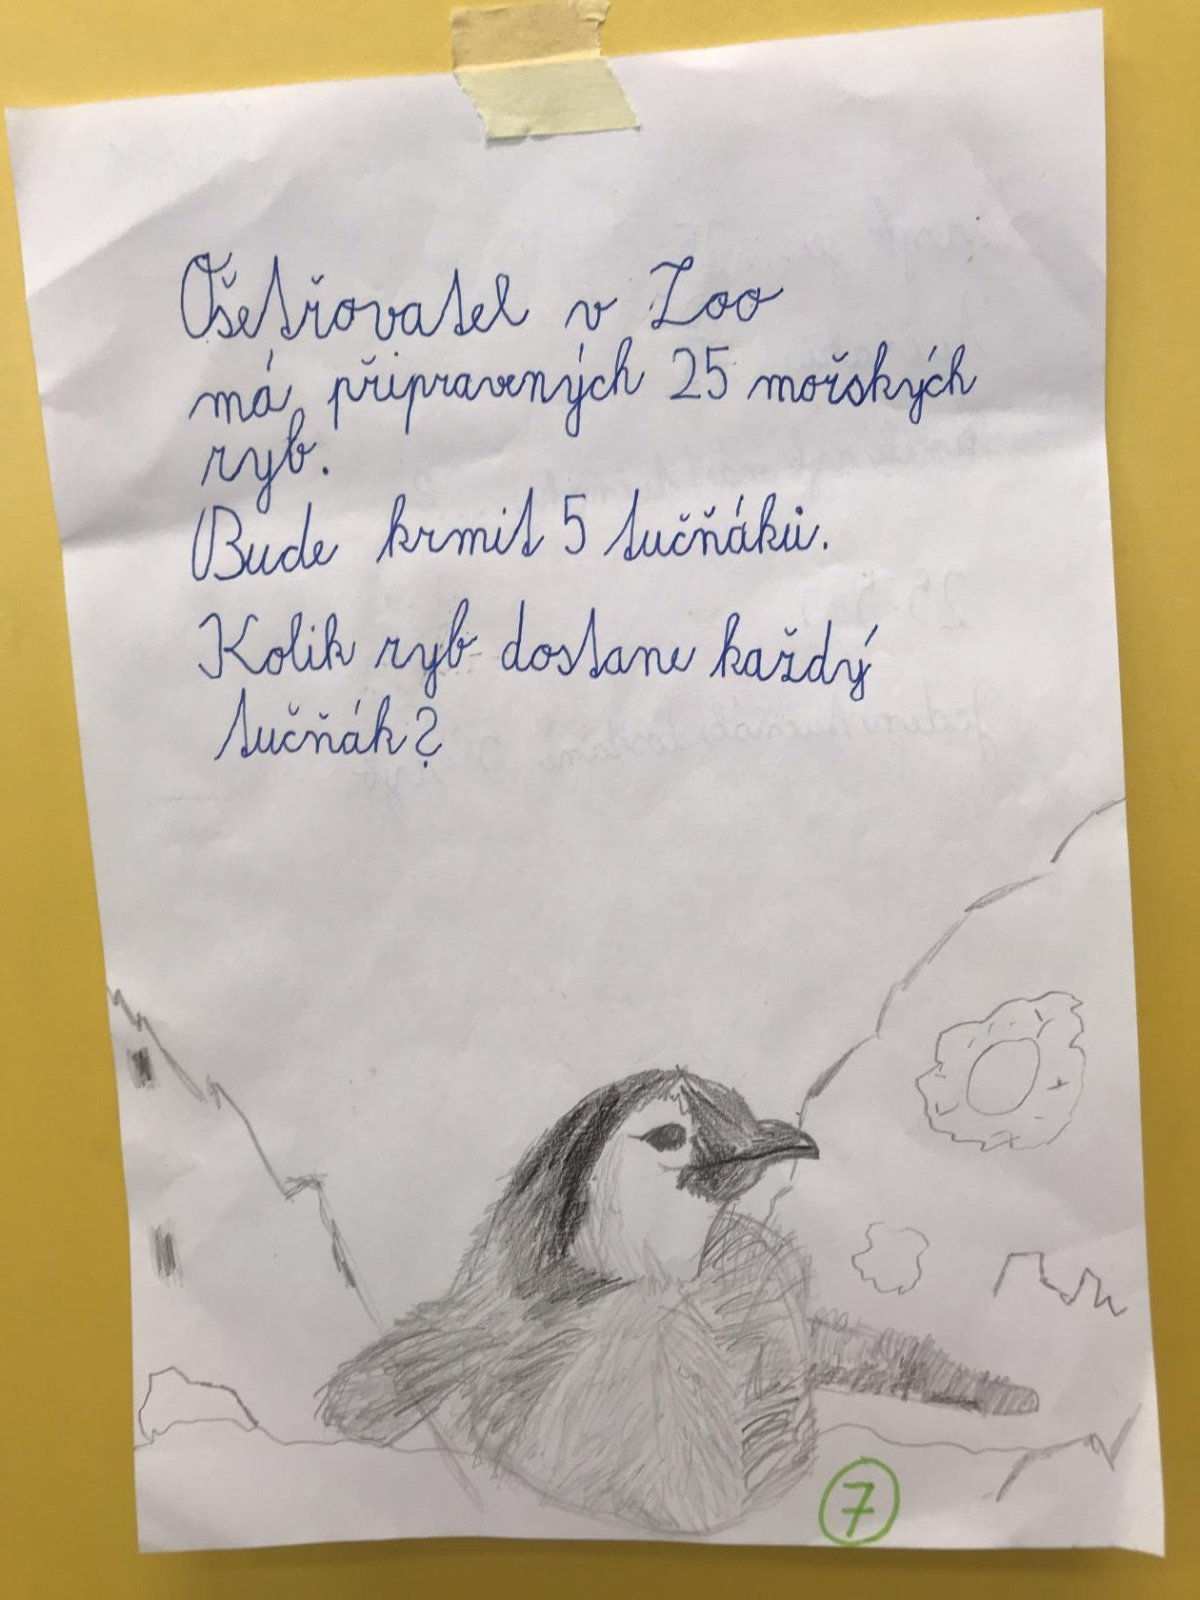 Ošetřovatel v Zoo
má připravených 25 mořských
ryb.
Bude krmit 5 tučňáků.
Kolik ryb dostane každý
tučňák?
7